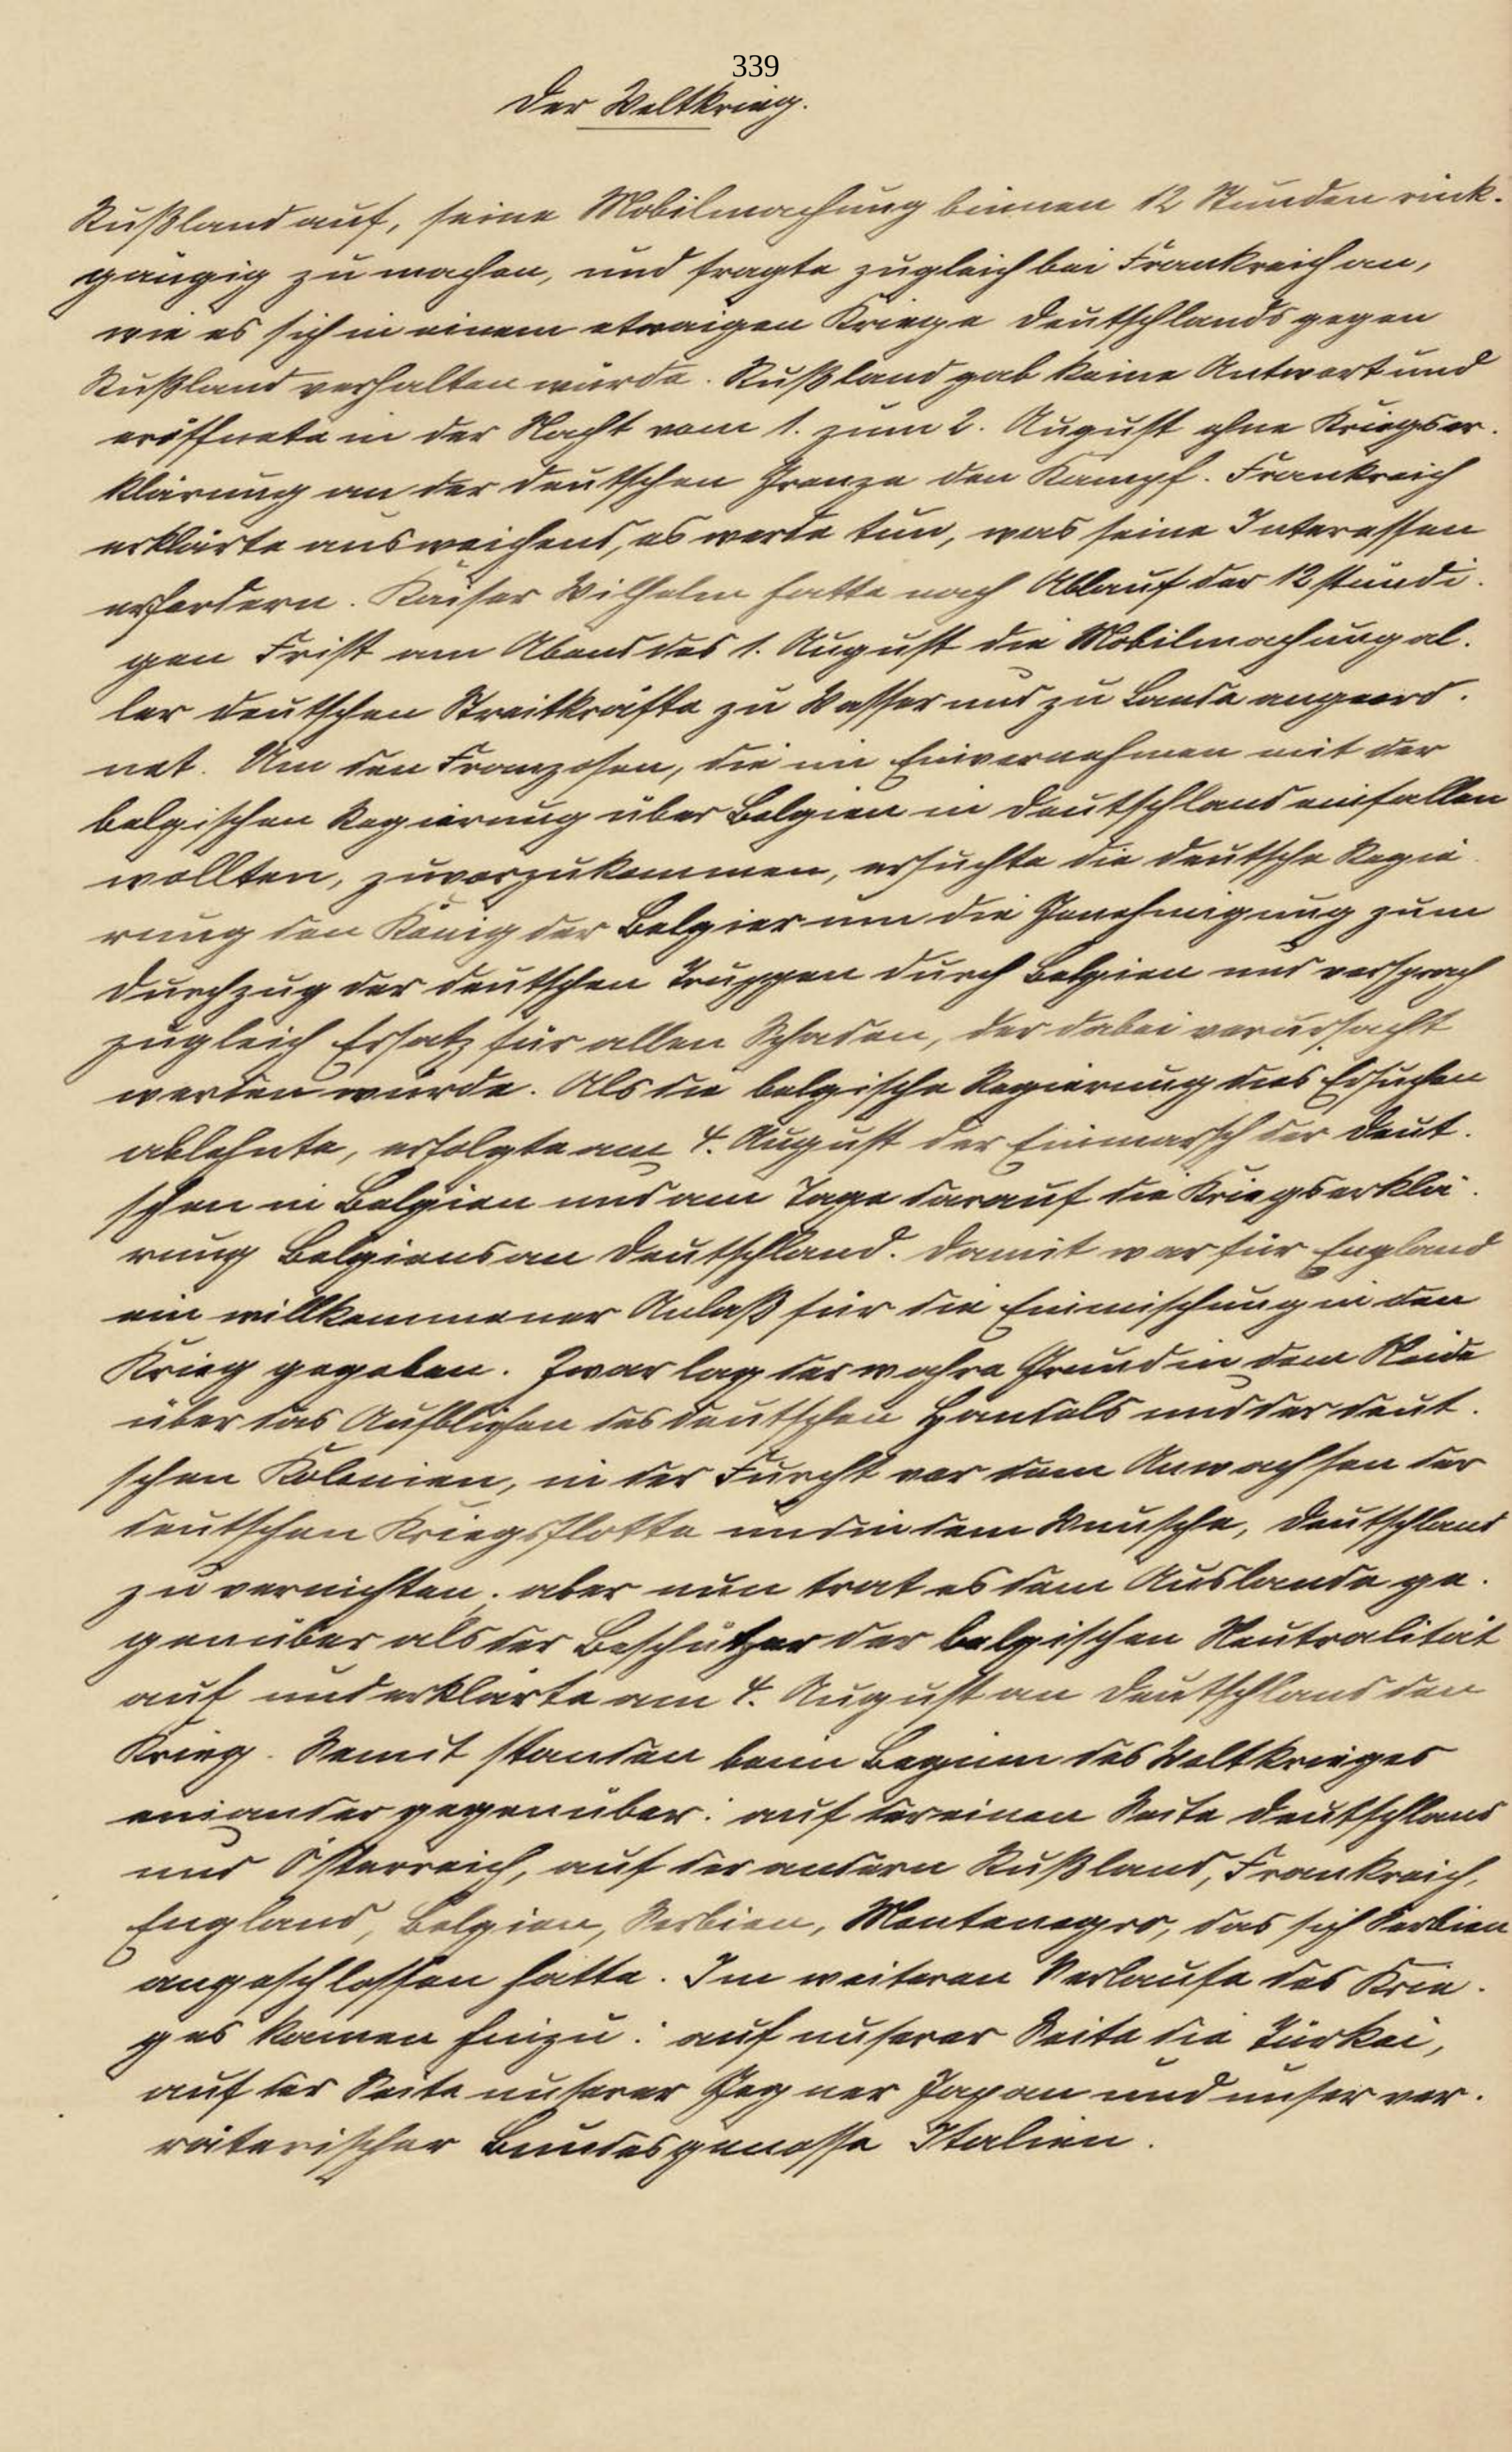 339
Der Weltkrieg.
Rußland auf, seine Mobilmachung binnen 12 Stunden rück-
gängig zu machen, und fragte zugleich bei Frankreich an,
wie es sich in einem etwaigen Kriege Deutschlands gegen
Rußland verhalten würde. Rußland gab keine Antwort und
eröffnete in der Nacht vom 1. zum 2. August ohne Kriegser-
klärung an der deutschen Grenze den Kampf. Frankreich
erklärte ausweichend, es werde tun, was seine Interessen
erfordern. Kaiser Wilhelm hatte nach Ablauf der 12stündi-
gen Frist am Abend des 1. August die Mobilmachung al-
ler deutschen Streitkräfte zu Wasser und zu Lande angeord-
net. Um den Franzosen, die im Einvernehmen mit der
belgischen Regierung über Belgien in Deutschland einfallen
wollten, zuvorzukommen, ersuchte die deutsche Regie-
rung den König der Belgier um die Genehmigung zum
Durchzug der deutschen Truppen durch Belgien und versprach
zugleich Ersatz für allen Schaden, der dabei verursacht
werden würde. Als die belgische Regierung dies Ersuchen
ablehnte, erfolgte am 4. August der Einmarsch der Deut-
schen in Belgien und am Tage darauf die Kriegserklä-
rung Belgiens an Deutschland. Damit war für England
ein willkommener Anlaß für die Einmischung in den
Krieg gegeben. Zwar lag der wahre Grund in dem Neide
über das Aufblühen des deutschen Handels und der deut-
schen Kolonien, in der Furcht vor dem Anwachsen der
deutschen Kriegsflotte und in dem Wunsche, Deutschland
zu vernichten; aber nun trat es dem Auslande ge-
genüber als der Beschützer der belgischen Neutralität
auf und erklärte am 4. August an Deutschland den
Krieg. Somit standen beim Beginn des Weltkrieges
einander gegenüber: auf der einen Seite Deutschland
und Österreich, auf der andern Rußland, Frankreich,
England, Belgien, Serbien, Montenegro, das sich Serbien
angeschlossen hatte. Im weiteren Verlaufe des Krie-
ges kamen hinzu: auf unserer Seite die Türkei,
auf der Seite unserer Gegner Japan und unser ver-
räterischer Bundesgenosse Italien.